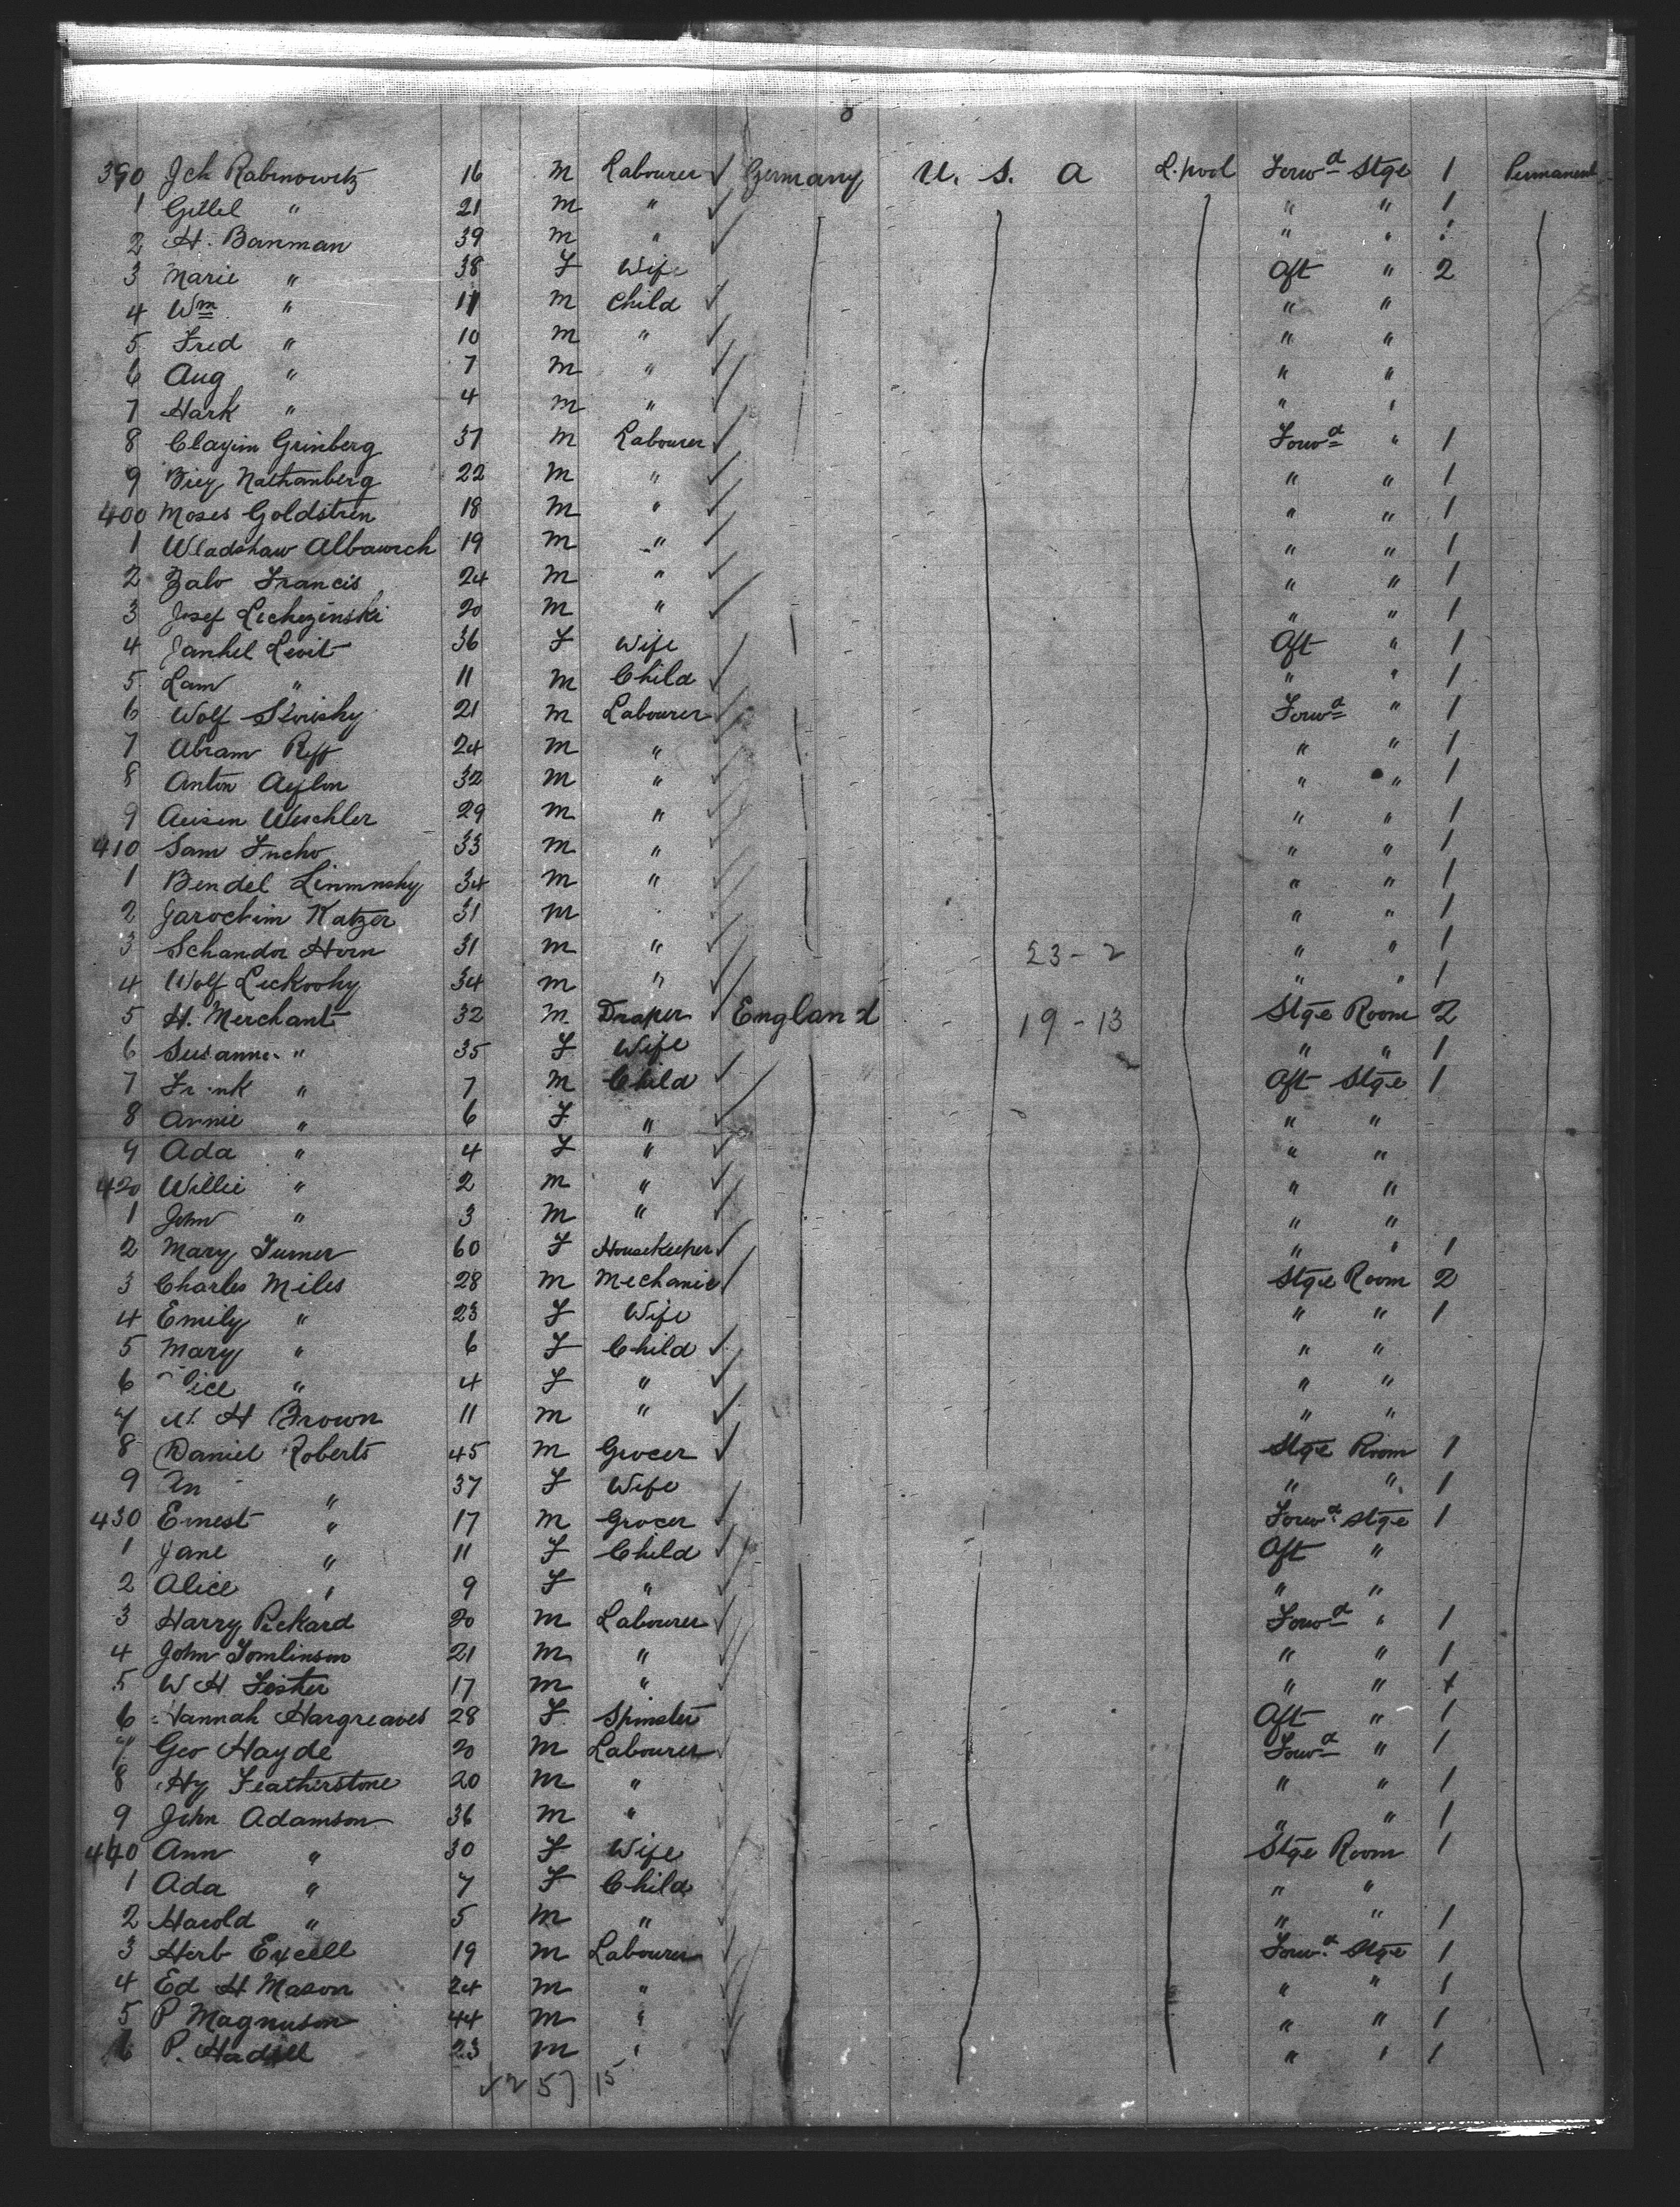 8
390 Jch Rabinowitz 16 m Labourer ✓ Germany U. S. A L.pool Forwd Stge 1 Permanent
1 Gittel " 21 m " ✓ " " 1
2 H. Banman 39 m " ✓ " "
3 Marie " 38 F Wife Aft " 2
4 Wm " 11 m Child ✓ " "
5 Fred " 10 m " ✓ " "
6 Aug " 7 m " ✓ " "
7 Hark " 4 m " ✓ " "
8 Clayim Grinberg 37 m Labourer ✓ Forwd " 1
9 Nathanberg 22 m " ✓ " " 1
400 Moses Goldstren 18 m " ✓ " " 1
1 Wladshaw Albawrch 19 m " ✓ " " 1
2 Zalo Francis 24 m " ✓ " " 1
3 Josef Lichezinski 20 m " ✓ " " 1
4 Jankel Levit 36 F Wife Aft " 1
5 Lam " 11 m Child ✓ " " 1
6 Wolf 21 m Labourer ✓ Forwd " 1
7 Abram Reff 24 m " ✓ " " 1
8 Anton Aylon 32 m " ✓ " " 1
9 Aeisen Weschler 29 m " ✓ " " 1
410 Sam 33 m " ✓ " " 1
1 Bendel 34 m " ✓ " " 1
2 Jarochim Katzer 31 m " " 1
3 Schandor Horn 31 m " ✓ 23 - 2 " " 1
4 Wolf Leckoohy 34 m " ✓ " " 1
5 H. Merchant 32 m Draper ✓ England 19 - 13 Stge Room 2
6 Susanna " 35 F Wife " " 1
7 Frank " 7 m Child ✓ Aft Stge 1
8 Annie " 6 F " ✓ " "
9 Ada " 4 F " ✓ " "
420 Willie " 2 m " ✓ " "
1 John " 3 m " ✓ " "
2 Mary Turner 60 F Housekeeper ✓ " " 1
3 Charles Miles 28 m Mechanic ✓ Stge Room 2
4 Emily " 23 F Wife " " 1
5 Mary " 6 F Child ✓ " "
6 " 4 F " ✓ " "
7 H Brown 11 m " ✓ " "
8 Daniel Roberts 45 m Grocer ✓ Stge Room 1
9 " 37 F Wife " " 1
430 Ernest " 17 m Grocer ✓ Forwd Stge 1
1 Jane " 11 F Child ✓ Aft "
2 Alice " 9 F " ✓ " "
3 Harry Pickard 20 m Labourer ✓ Forwd " 1
4 John Tomlinson 21 m " ✓ " " 1
5 W H Foster 17 m " ✓ " "
6 Hannah Hargreaves 28 F Spinster Aft " 1
7 Geo Hayde 20 m Labourer Forwd " 1
8 Hy Featherstone 20 m " " " 1
9 John Adamson 36 m " " " 1
440 Ann " 30 F Wife Stge Room 1
1 Ada " 7 F Child " "
2 Harold " 5 m " " " 1
3 Herb Excell 19 m Labourer ✓ Forwd Stge 1
4 Ed H Mason 24 m " ✓ " " 1
5 P Magnuson 44 m " ✓ " " 1
6 P. Hadell 23 m " ✓ " " 1
57 15